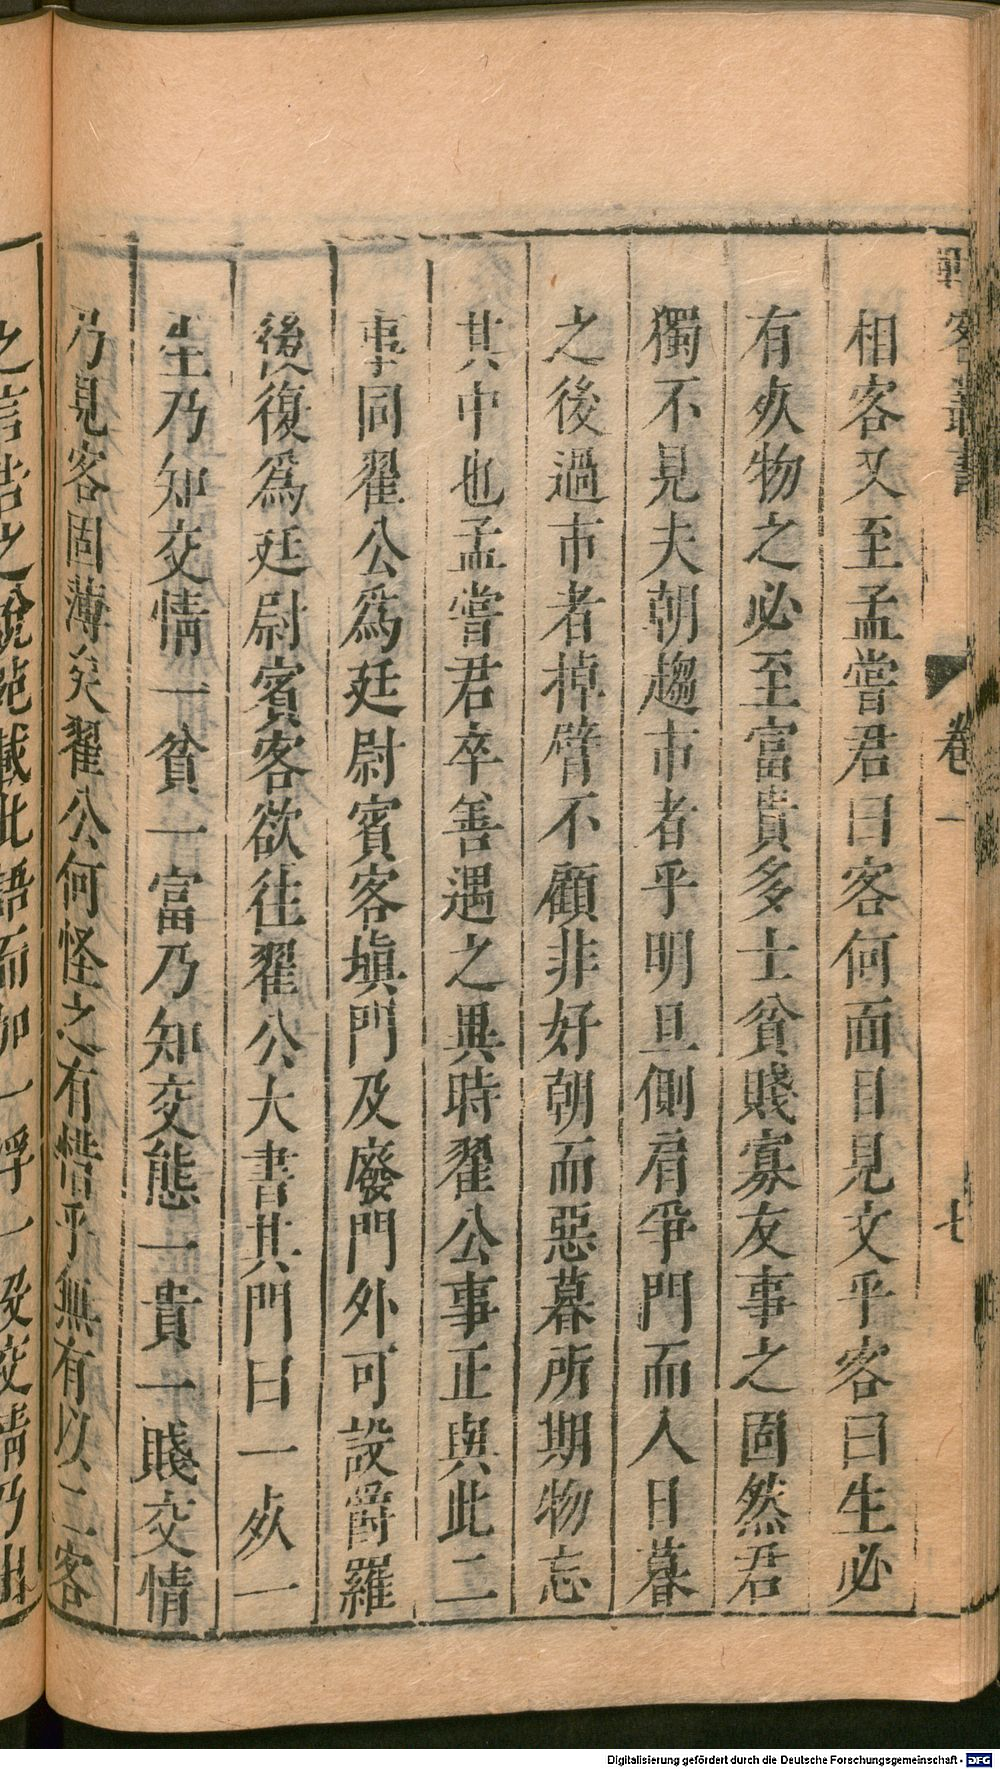 卷一
七
相客又至孟嘗君曰客何面目見文乎客曰生必
有死物之必至富貴多士貧賤寡友事之固然君
獨不見夫朝趨市者乎明旦側肩爭門而入日暮
之後過市者掉臂不顧非好朝而惡暮所期物忘
其中也孟嘗君卒善遇之異時翟公事正與此二
事同翟公爲廷尉賓客塡門及廢門外可設爵羅
後復爲廷尉賓客欲往翟公大書其門曰一死一
生乃知交情一貧一富乃知交態一貴一賤交情
乃見客固薄矣翟公何怪之有惜乎無有以二客
之言告之說苑載此語而加一浮一沒交情乃出
Digitalisierung gefördert durch die Deutsche Forschungsgemeinschaft - DFG